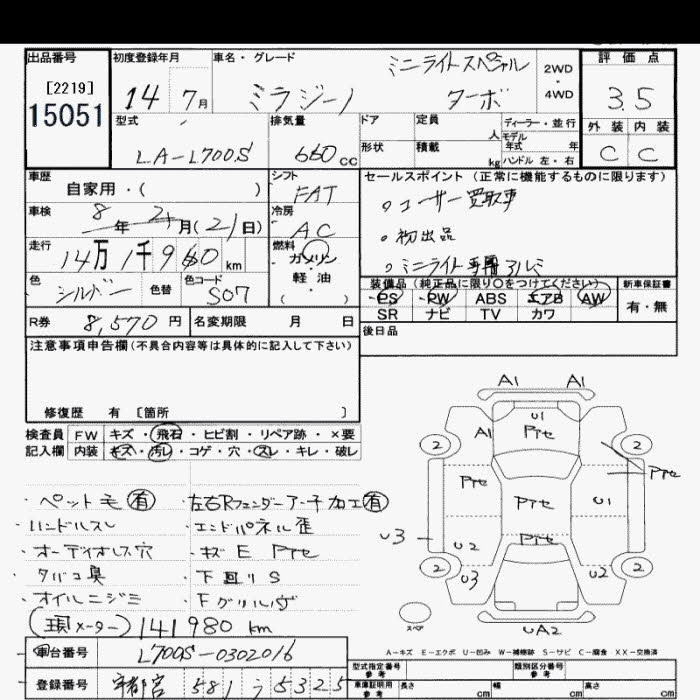 出品番号
[2219]
15051
初度登録年月
14年 7月
車名・グレード
ミラジーノ
ミニライトスペシャル
ターボ
2WD
・
4WD
評価点
3.5
外装 内装
C C
型式
LA-L700S
排気量
660cc
ドア
形状
定員 人
積載 kg
ディーラー・並行
モデル
年式 年
ハンドル 左・右
車歴
自家用・( )
車検
8年 2月(21日)
走行
14万1千960km
色
シルバー
色替
色コード
S07
シフト
FAT
冷房
AC
燃料
ガソリン
・
軽油
( )
セールスポイント(正常に機能するものに限ります)
○ユーザー買取車
○初出品
○ミニライト専用アルミ
装備品(純正品に限り○をつけてください)
PS PW ABS エアB AW
SR ナビ TV カワ
新車保証書
有・無
R券 8,570円
名変期限 月 日
後日品
注意事項申告欄(不具合内容等は具体的に記入して下さい)
修復歴 有 [箇所 ]
検査員 FW キズ・飛石・ヒビ割・リペア跡・×要
記入欄 内装 キズ・汚レ・コゲ・穴・スレ・キレ・破レ
・ペット毛 有 ・左右Rフェンダーアーチ加工有
・ハンドルスレ ・エンドパネル歪
・オーディオレス穴 ・キズ E Pte
・タバコ臭 ・下回りS
・オイルニジミ ・Fグリルヴ
(現メーター) 141980km
車台番号 L700S-0302016
登録番号 宇都宮 581 う 5325
A1 A1
U1
A1 Pte
2 2
Pte Pte
Pte U1
U3 U2 Pte
2 2
U3 U2
スペア
UA2
A-キズ E-エクボ U-凹み W-補修跡 S-サビ C-腐食 XX-交換済
型式指定番号
参考
類別区分番号
参考
車庫証明用
参考
長さ cm 幅 cm 高さ cm